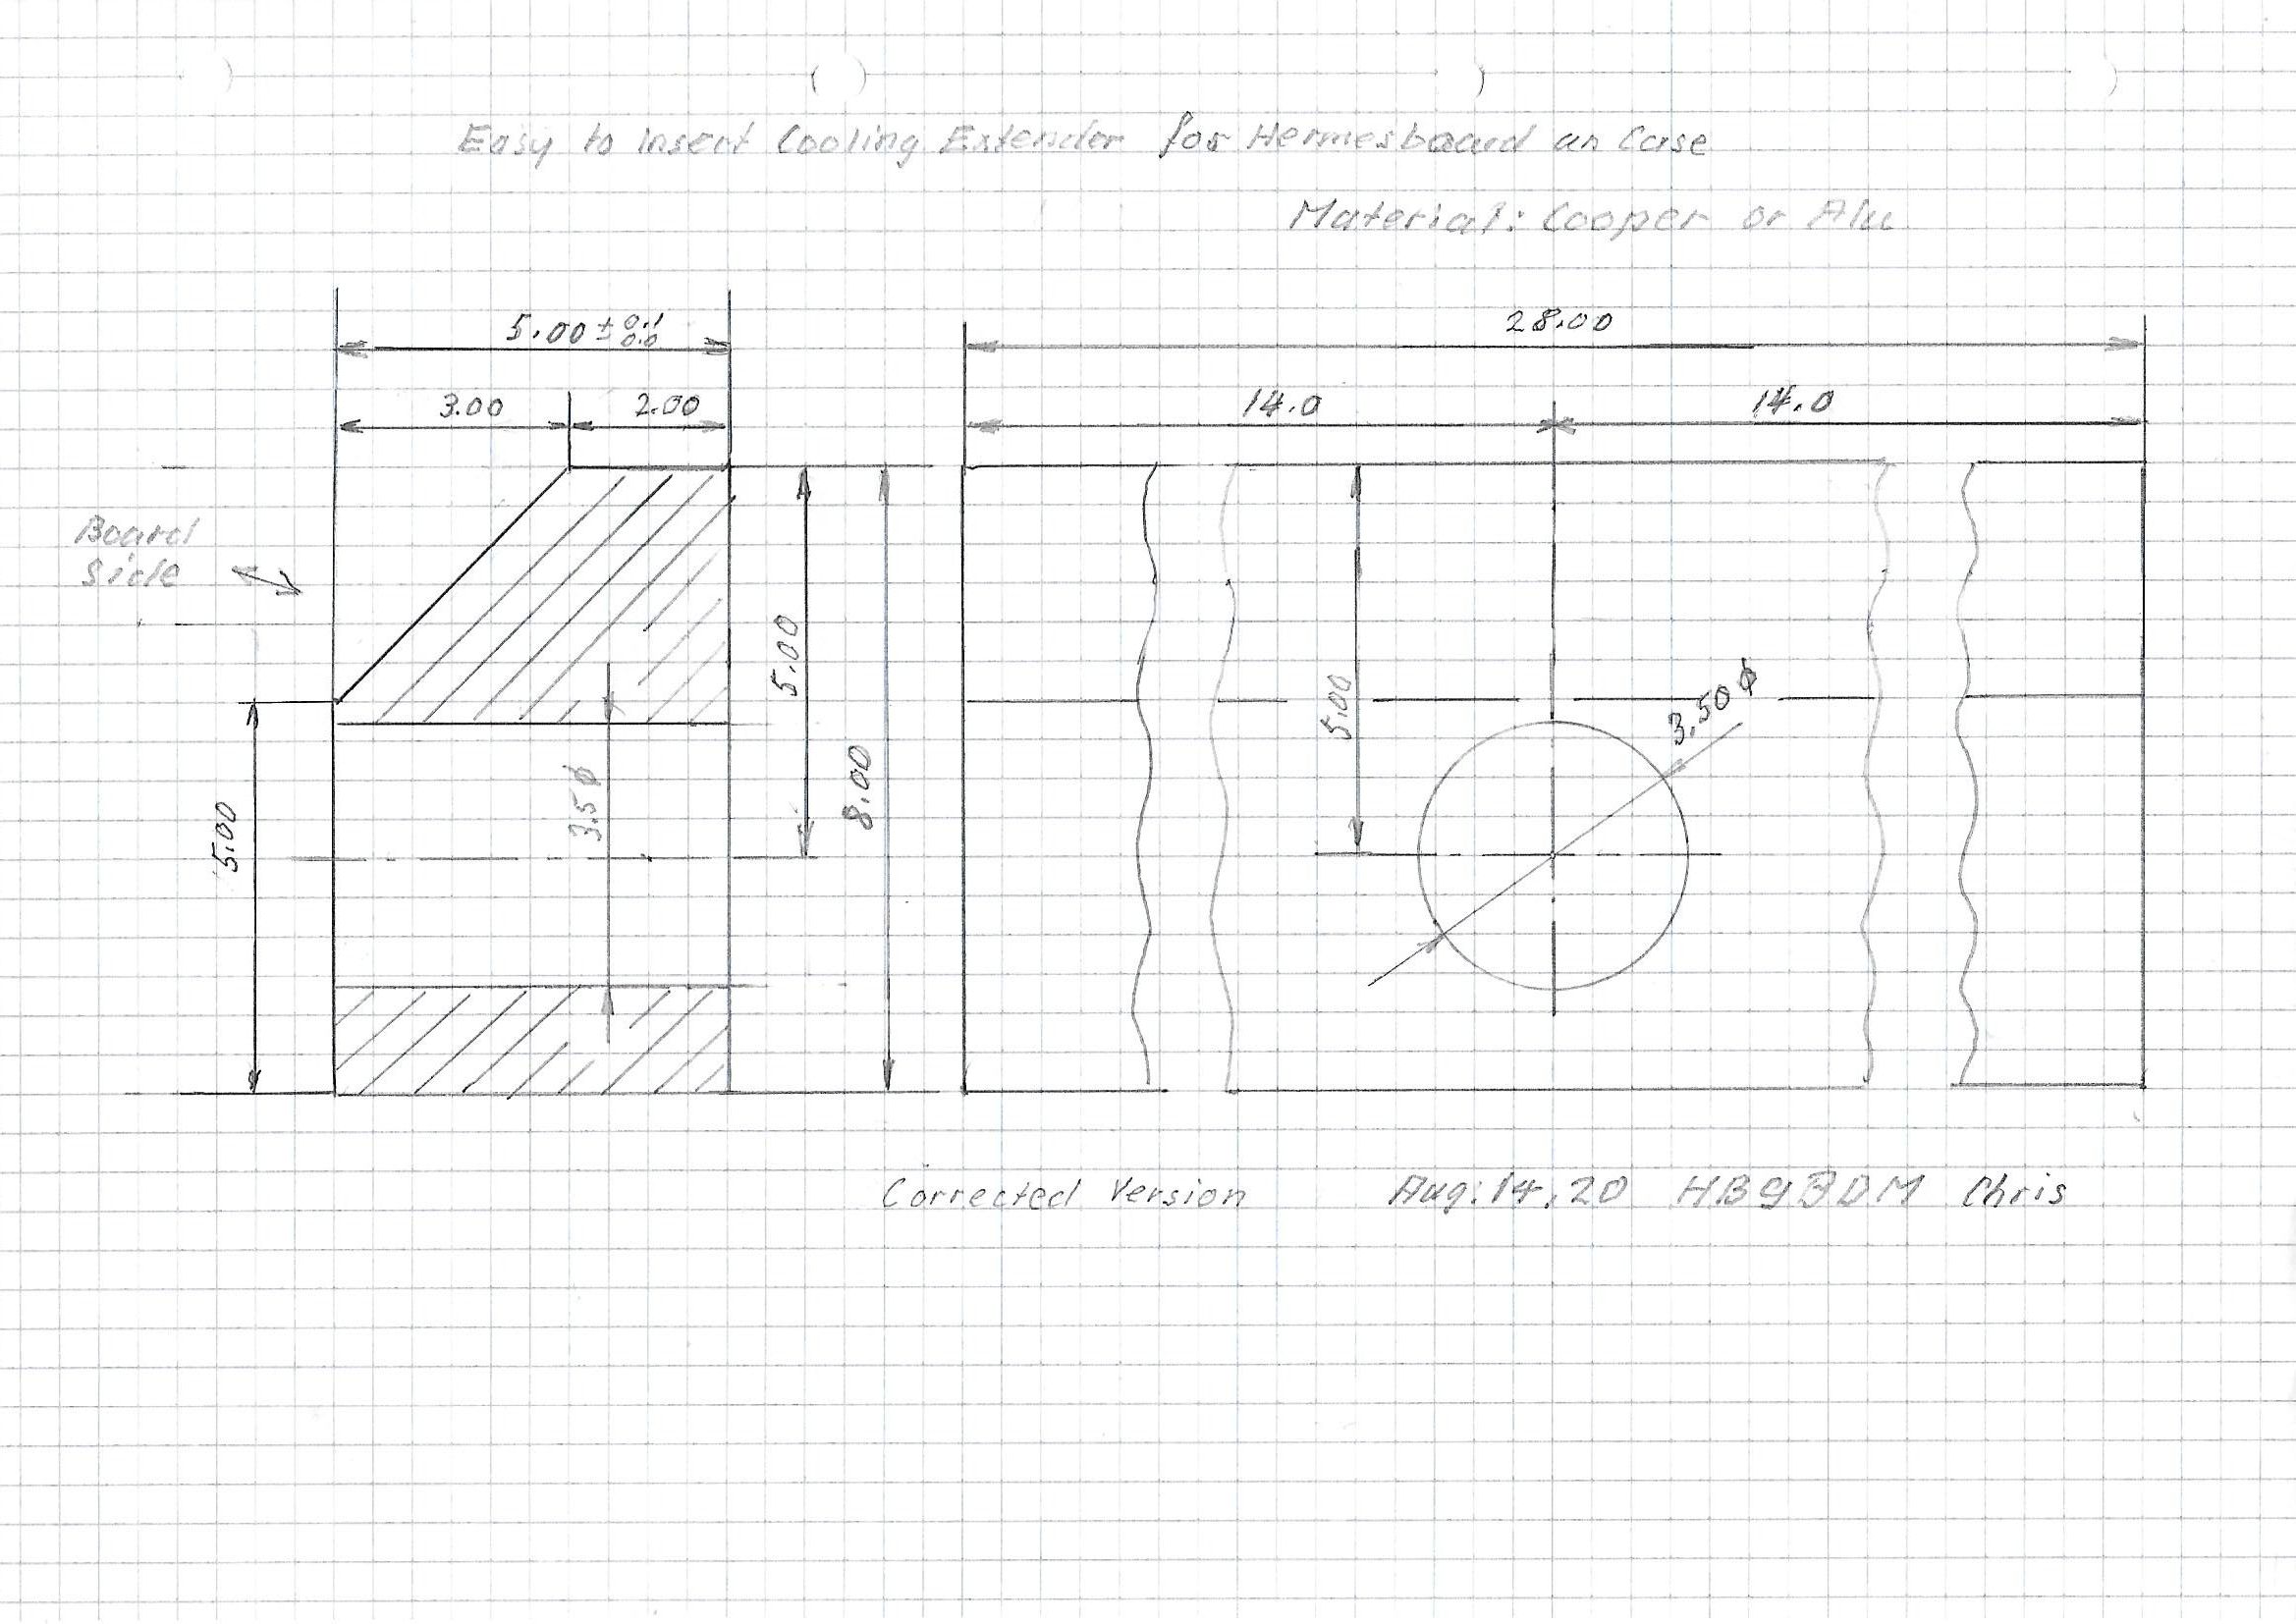 Easy to insert Cooling Extender for Hermesboard an Case
Material: Cooper or Alu
5.00 ± 0.1
0.0
28.00
3.00
2.00
14.0
14.0
Board
Side
5.00
3.5 ϕ
5.00
8.00
5.00
3.50 ϕ
Corrected Version Aug. 14. 20 HB9BDM Chris